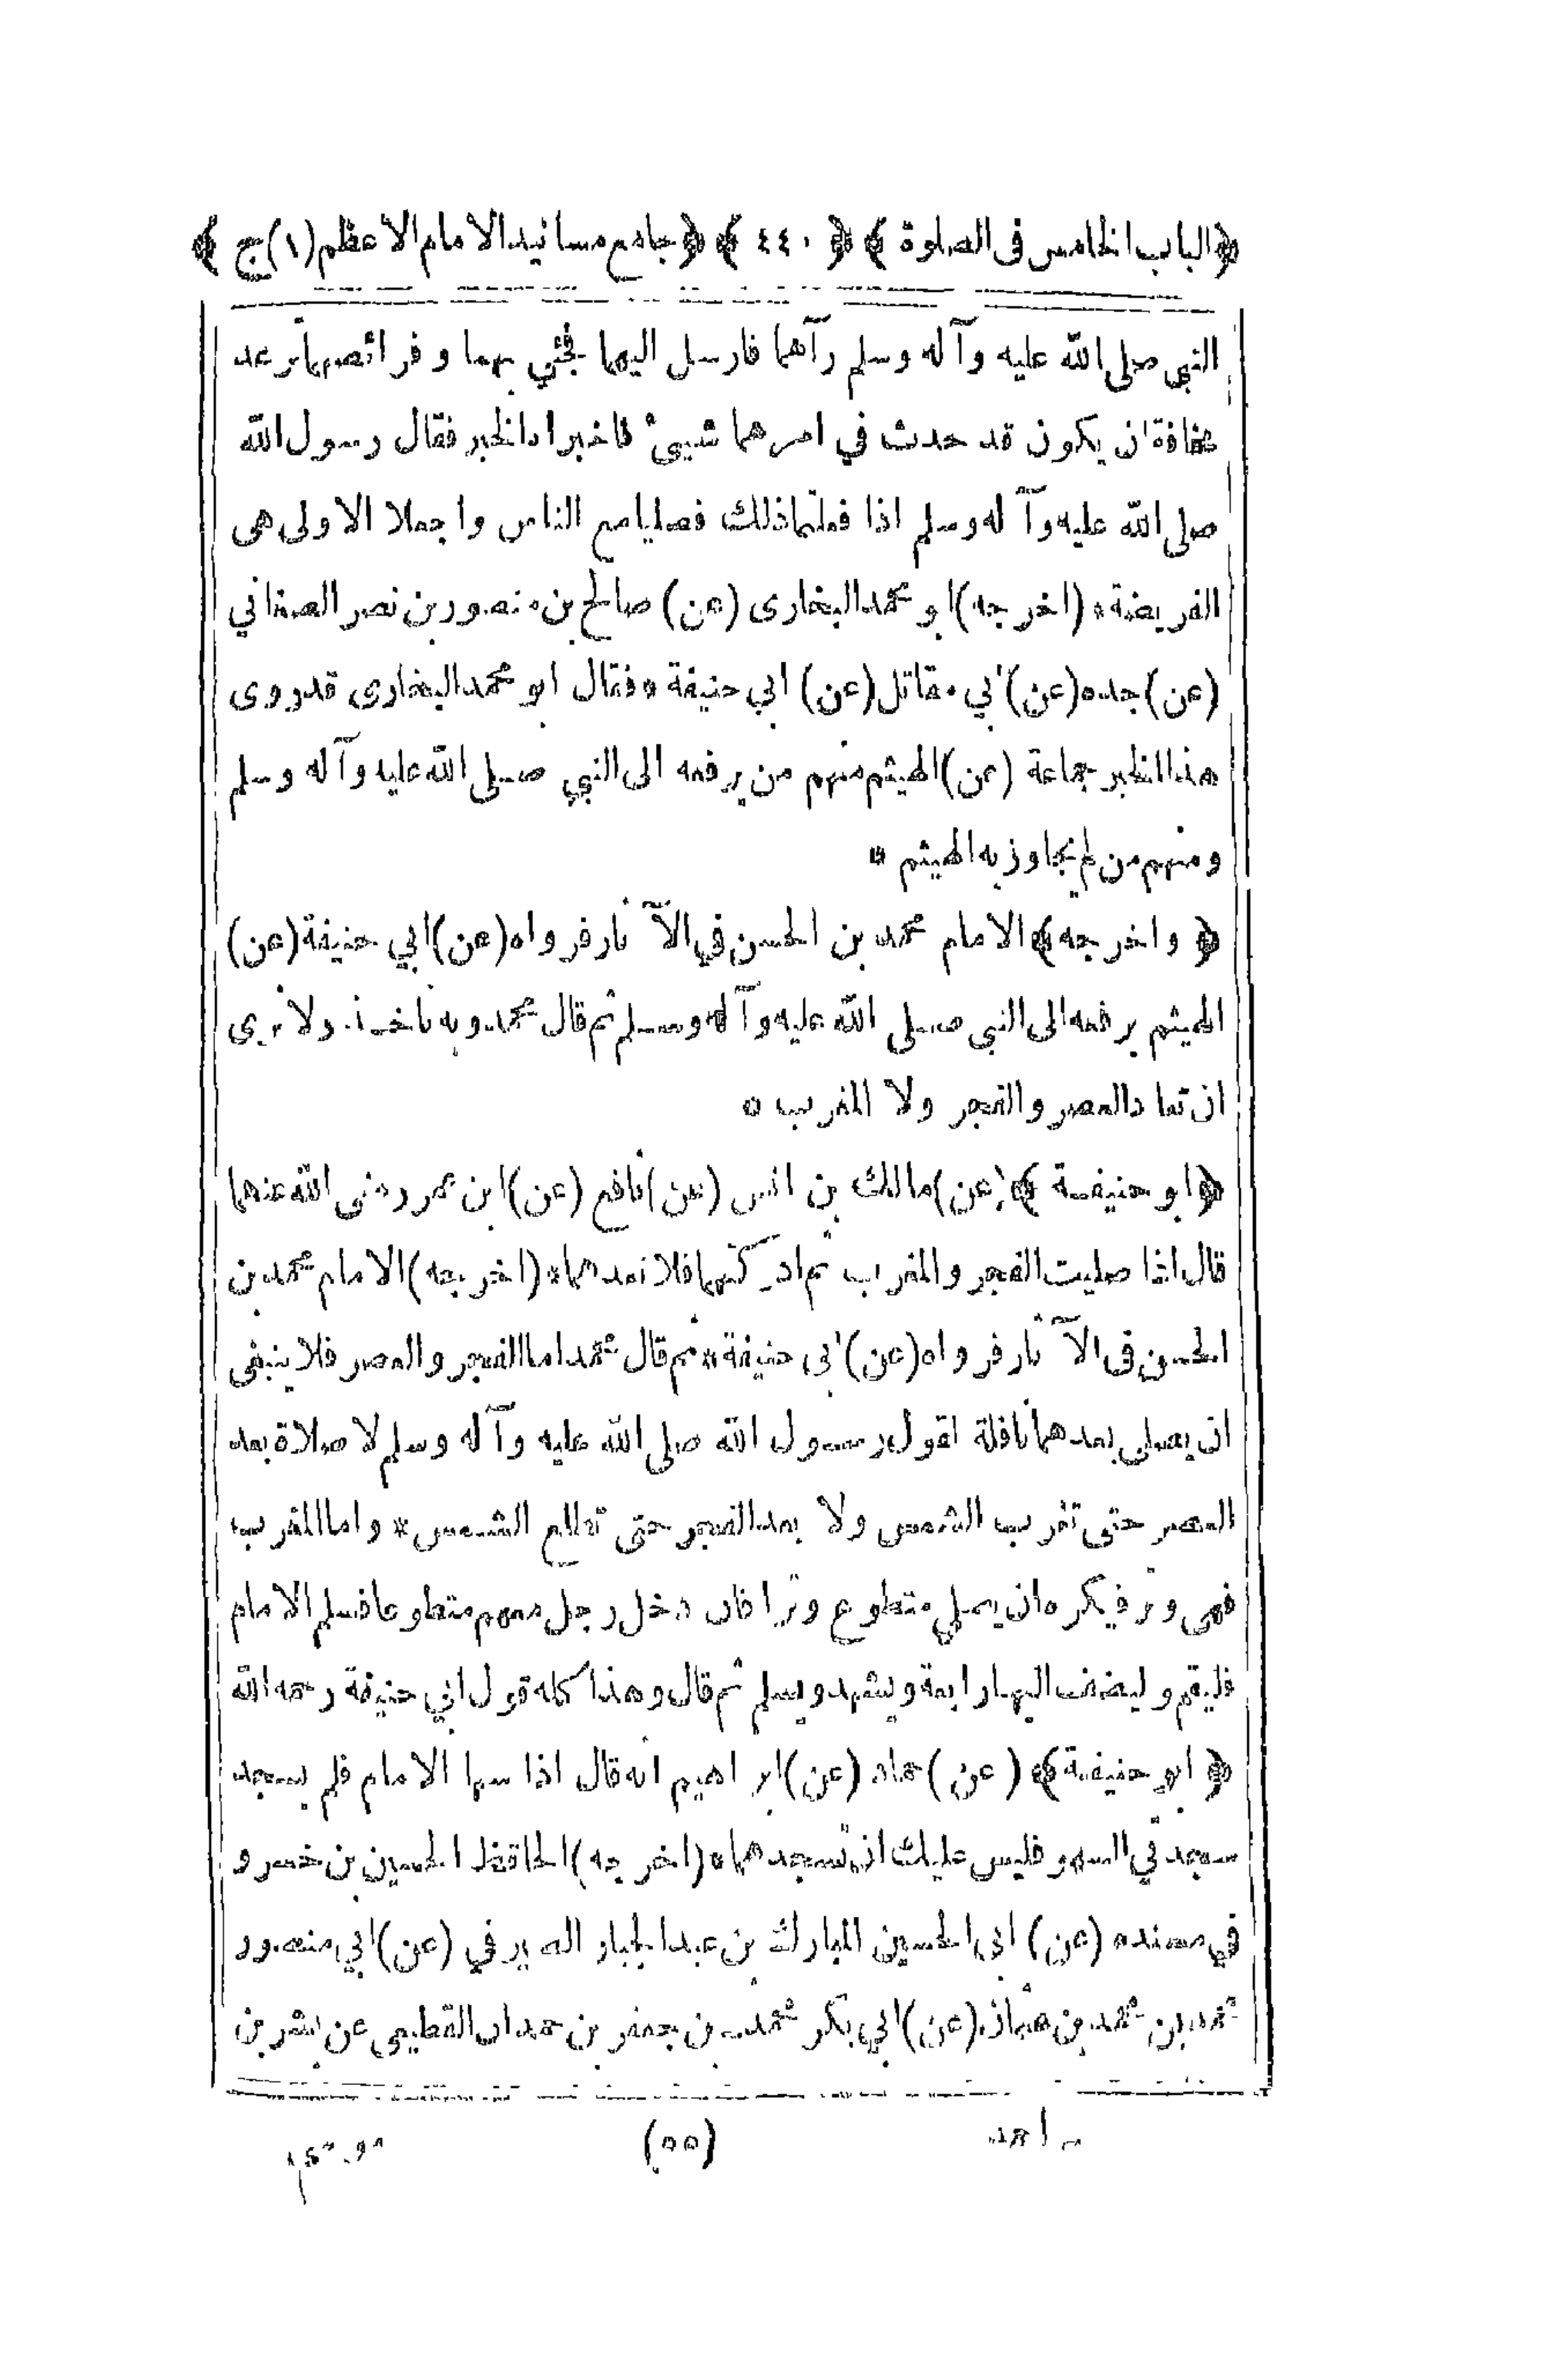 ﴿الباب الخامس فى الصلوة﴾ ﴿٤٤٠﴾ ﴿جامع مسانيد الامام الاعظم(١)ج﴾
النبي صلى الله عليه وآله وسلم رآهما فارسل اليهما فجئي بهما وفرائصهما ترعد
مخافة ان يكون قد حدث في امرهما شيئ فاخبراه الخبر فقال رسول الله
صلى الله عليه وآله وسلم اذا فعلتما ذلك فصليا مع الناس واجعلا الاولى هى
الفريضة * (اخرجه) ابو محمد البخارى (عن) صالح بن منصور بن نصر الصغاني
(عن) جده (عن) ابي مقاتل (عن) ابي حنيفة * فقال ابو محمد البخارى قد روى
هذا الخبر جماعة (عن) الهيثم منهم من يرفعه الى النبي صلى الله عليه وآله وسلم
ومنهم من لم يجاوز به الهيثم *
﴿واخرجه﴾ الامام محمد بن الحسن في الآثار فرواه (عن) ابي حنيفة (عن)
الهيثم يرفعه الى النبي صلى الله عليه وآله وسلم ثم قال محمد وبه نأخذ ولا نرى
ان تعاد العصر والفجر ولا المغرب *
﴿ابو حنيفة﴾ (عن) مالك بن انس (عن) نافع (عن) ابن عمر رضى الله عنهما
قال اذا صليت الفجر والمغرب ثم ادركتهما فلا تعدهما * (اخرجه) الامام محمد بن
الحسن فى الآثار فرواه (عن) ابى حنيفة * ثم قال محمد اما الفجر والعصر فلا ينبغى
ان يصلى بعدهما نافلة لقول رسول الله صلى الله عليه وآله وسلم لا صلاة بعد
العصر حتى تغرب الشمس ولا بعد الفجر حتى تطلع الشمس * واما المغرب
فهى وتر فيكره ان يصلي متطوع وترا فان دخل رجل معهم متطوعا فسلم الامام
فليقم وليضف اليها رابعة ويتشهد ويسلم ثم قال وهذا كله قول ابي حنيفة رحمه الله
﴿ابو حنيفة﴾ (عن) حماد (عن) ابراهيم انه قال اذا سها الامام فلم يسجد
سجدتي السهو فليس عليك ان تسجدهما * (اخرجه) الحافظ الحسين بن خسرو
في مسنده (عن) ابي الحسين المبارك بن عبد الجبار الصيرفي (عن) ابي منصور
محمد بن محمد بن عثمان (عن) ابي بكر محمد بن جعفر بن حمدان القطيعي عن بشر بن
(٥٥)